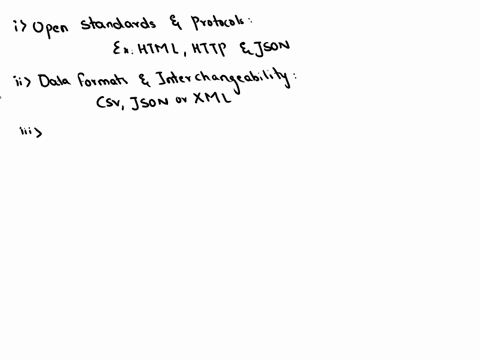 i> Open Standards & Protocols:
Ex. HTML, HTTP & JSON
ii> Data formats & Interchangeability:
CSV, JSON or XML
iii>